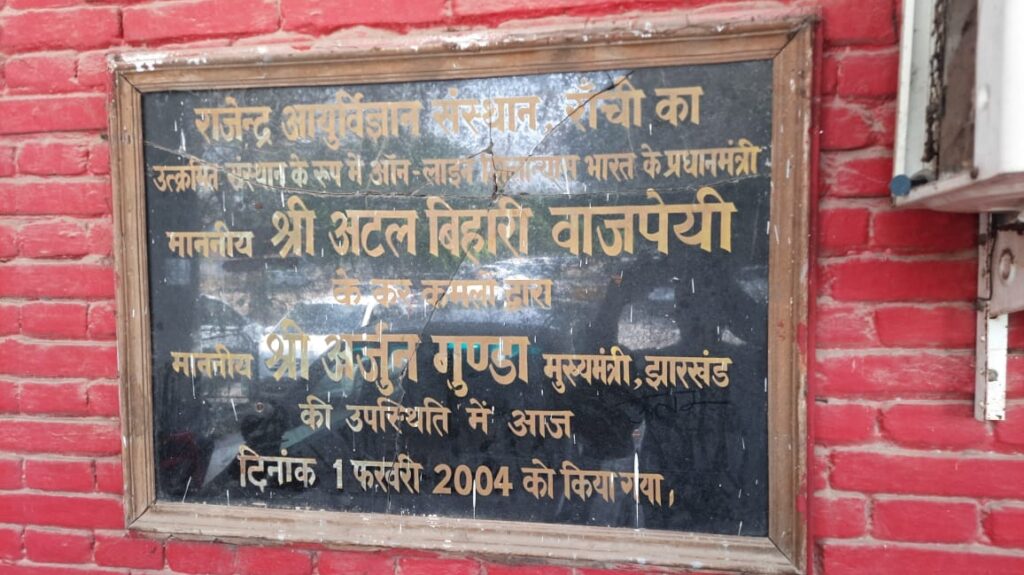 राजेन्द्र आयुर्विज्ञान संस्थान, राँची का
उत्क्रमित संस्थान के रूप में ऑन-लाइन शिलान्यास भारत के प्रधानमंत्री
माननीय श्री अटल बिहारी वाजपेयी
के कर कमलों द्वारा
माननीय श्री अर्जुन मुण्डा मुख्यमंत्री, झारखंड
की उपस्थिति में आज
दिनांक 1 फरवरी 2004 को किया गया।